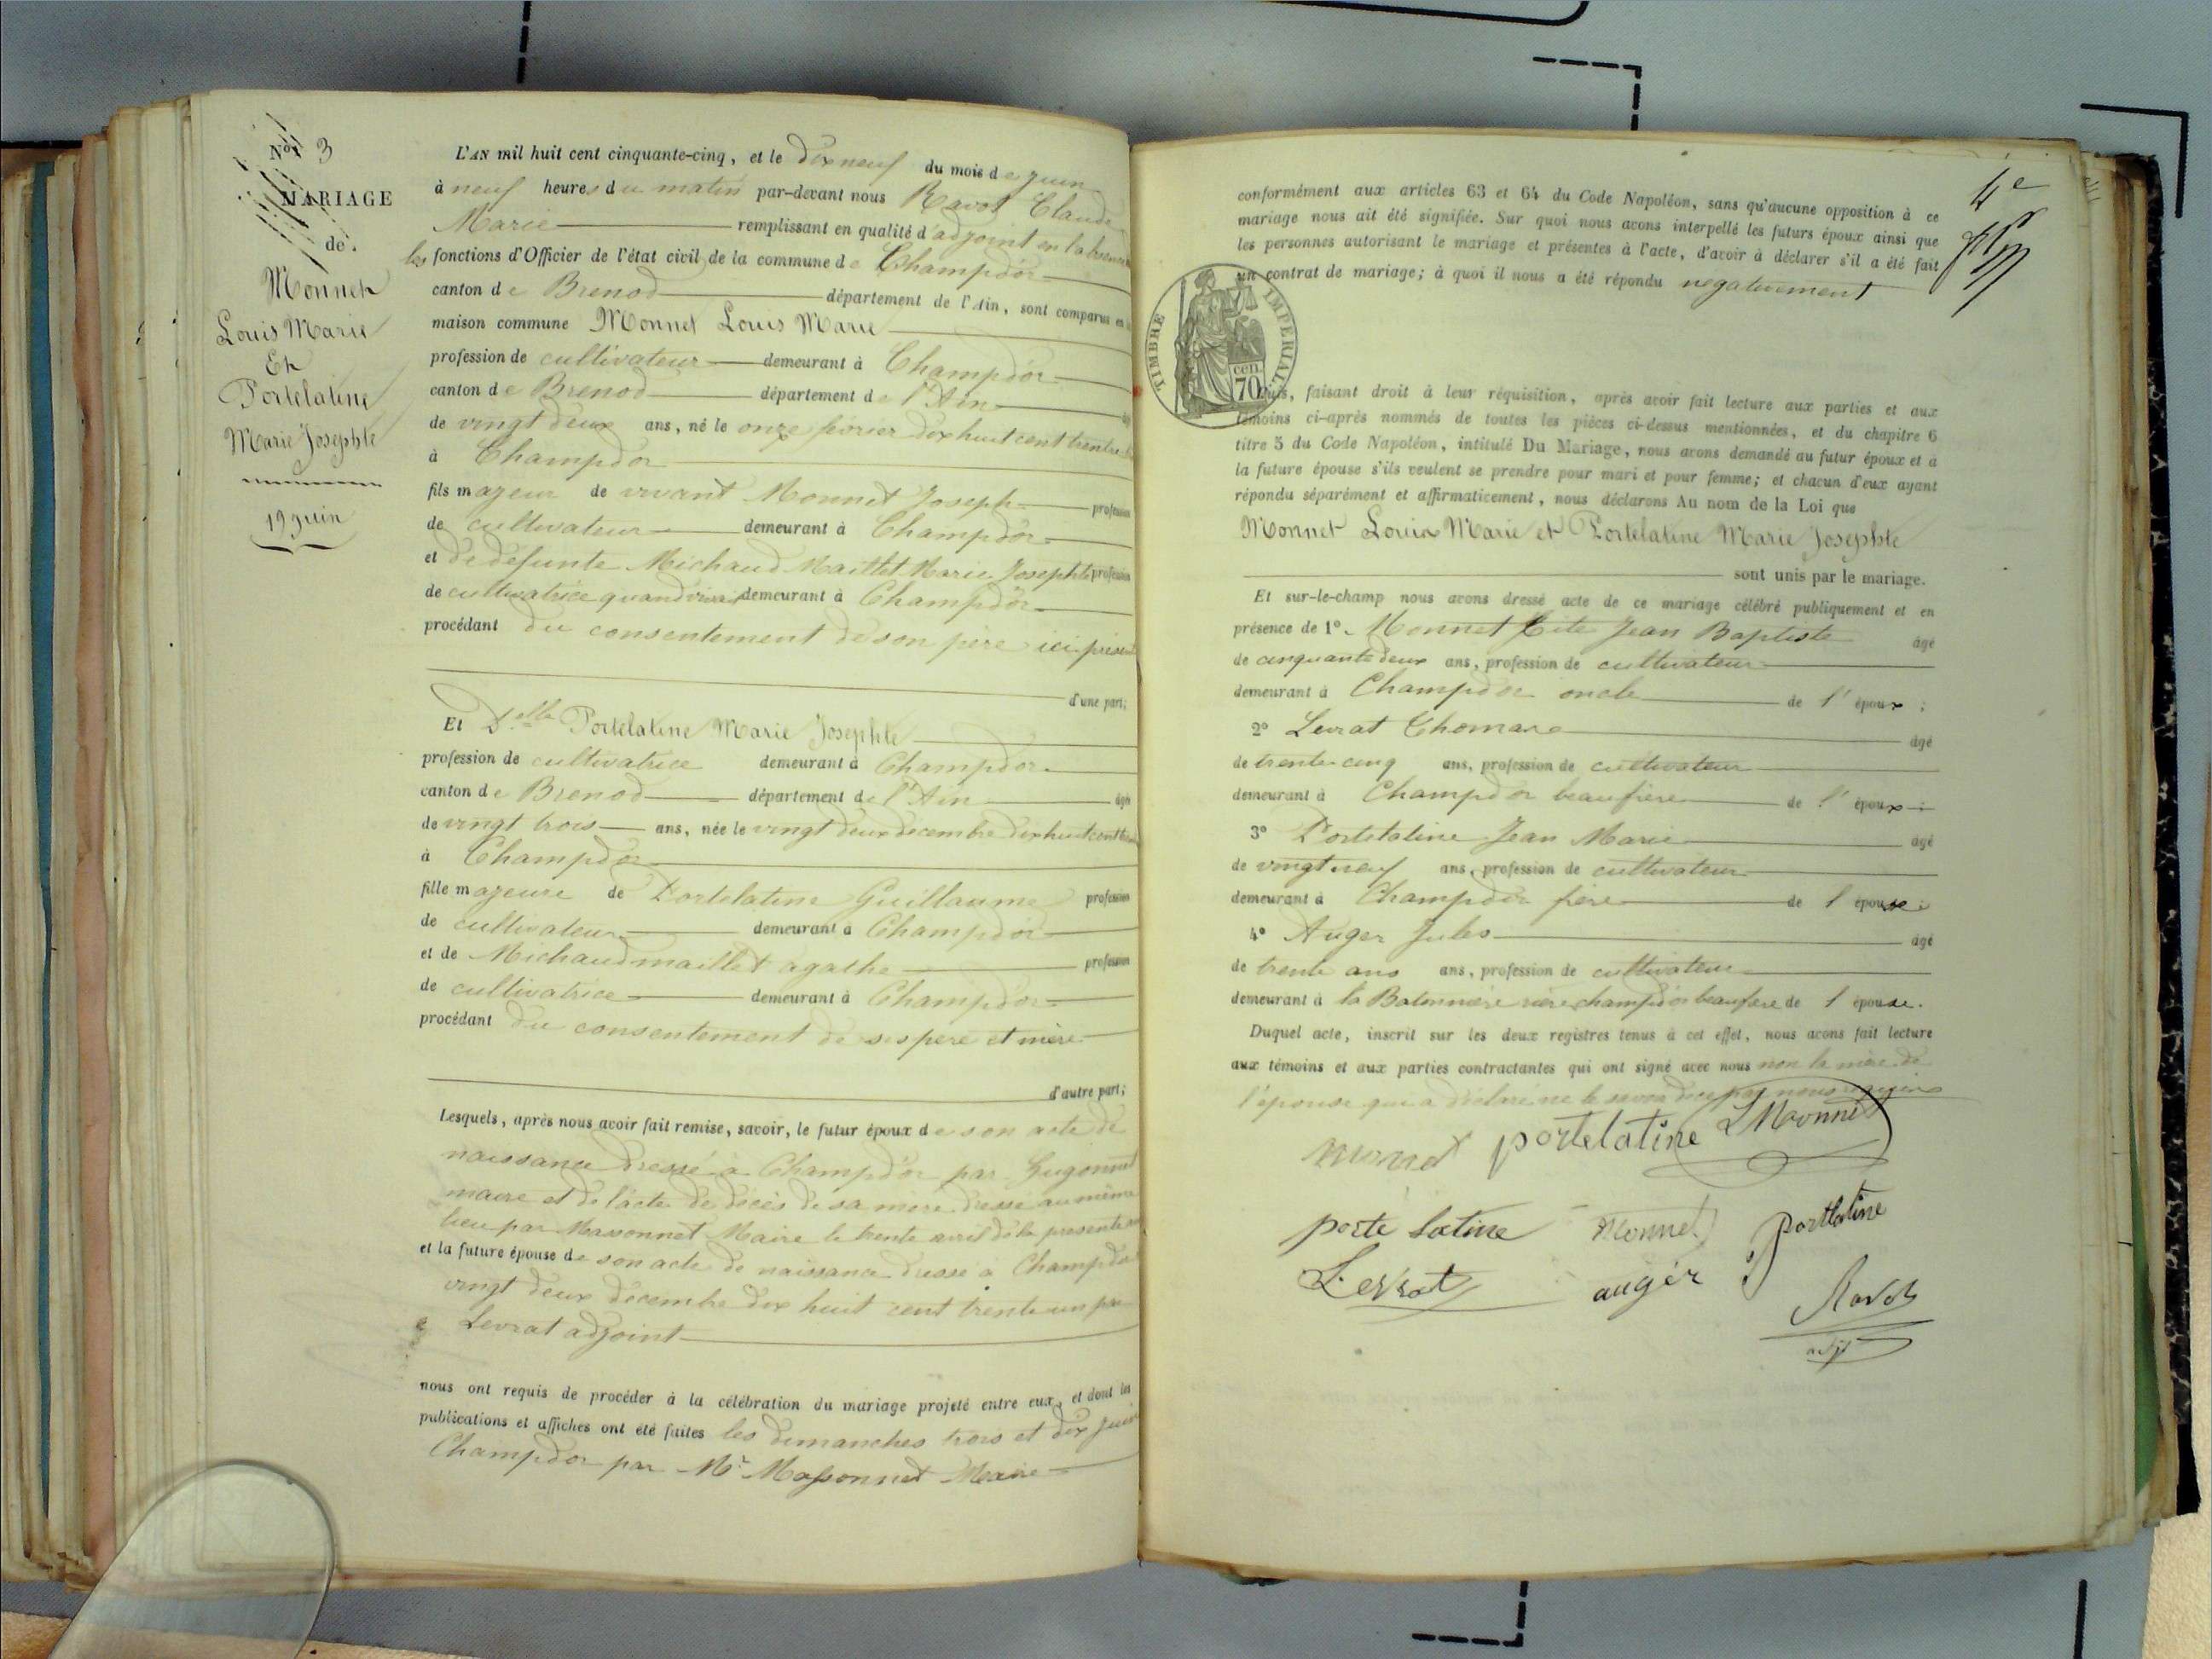 N° 3
MARIAGE
de
Monnet
Louis Marie
Et
Portelatine
Marie Josephte
19 juin
L'AN mil huit cent cinquante-cinq, et le dix neuf du mois de juin
à neuf heures du matin par-devant nous Ravot Claude
Marie remplissant en qualité d'adjoint en
les fonctions d'Officier de l'état civil de la commune de Champdor
canton de Brenod département de l'Ain, sont comparus en
maison commune Monnet Louis Marie
profession de cultivateur demeurant à Champdor
canton de Brenod département de l'Ain
de vingt deux ans, né le onze février dix huit cent trente
à Champdor
fils majeur de vivant Monnet Joseph profession
de cultivateur demeurant à Champdor
et de défunte Michaud Maillet Marie Josephte profession
de cultivatrice quand vivait demeurant à Champdor
procédant du consentement de son père ici présent
d'une part;
Et Delle Portelatine Marie Josephte
profession de cultivatrice demeurant à Champdor
canton de Brenod département de l'Ain
de vingt trois ans, née le vingt deux decembre dix huit cent
à Champdor
fille majeure de Portelatine Guillaume profession
de cultivateur demeurant à Champdor
et de Michaud maillet agathe profession
de cultivatrice demeurant à Champdor
procédant du consentement de ses pere et mère
d'autre part;
Lesquels, après nous avoir fait remise, savoir, le futur époux de son acte de
naissance dressé à Champdor par Gugonnet
maire et de l'acte de décès de sa mère dressé au même
lieu par Massonnet Maire le trente avril de la presente
et la future épouse de son acte de naissance dressé à Champdor
vingt deux décembre dix huit cent trente un par
Levrat adjoint
nous ont requis de procéder à la célébration du mariage projeté entre eux, et dont les
publications et affiches ont été faites les dimanches trois et dix juin
Champdor par Mr Massonnet Maire
4e
conformément aux articles 63 et 64 du Code Napoléon, sans qu'aucune opposition à ce
mariage nous ait été signifiée. Sur quoi nous avons interpellé les futurs époux ainsi que
les personnes autorisant le mariage et présentes à l'acte, d'avoir à déclarer s'il a été fait
un contrat de mariage; à quoi il nous a été répondu negativement
TIMBRE IMPERIAL
70 cen.
Puis, faisant droit à leur réquisition, après avoir fait lecture aux parties et aux
témoins ci-après nommés de toutes les pièces ci-dessus mentionnées, et du chapitre 6
titre 5 du Code Napoléon, intitulé Du Mariage, nous avons demandé au futur époux et à
la future épouse s'ils veulent se prendre pour mari et pour femme; et chacun d'eux ayant
répondu séparément et affirmativement, nous déclarons Au nom de la Loi que
Monnet Louis Marie et Portelatine Marie Josephte
sont unis par le mariage.
Et sur-le-champ nous avons dressé acte de ce mariage célébré publiquement et en
présence de 1°. Monnet Tite Jean Baptiste âgé
de cinquante deux ans, profession de cultivateur
demeurant à Champdor oncle de l'époux;
2° Levrat Thomas âgé
de trente cinq ans, profession de cultivateur
demeurant à Champdor beaufrère de l'époux;
3° Portelatine Jean Marie âgé
de vingt neuf ans, profession de cultivateur
demeurant à Champdor frère de l'épouse;
4° Auger Jules âgé
de trente ans ans, profession de cultivateur
demeurant à la Batonnière rière champdor beaufrère de l'épouse.
Duquel acte, inscrit sur les deux registres tenus à cet effet, nous avons fait lecture
aux témoins et aux parties contractantes qui ont signé avec nous non la mère de
l'épouse qui a déclaré ne le savoir
monnet portelatine L Monnet
porte latine Monnet portlatine
Levrat auger Ravot
adjt